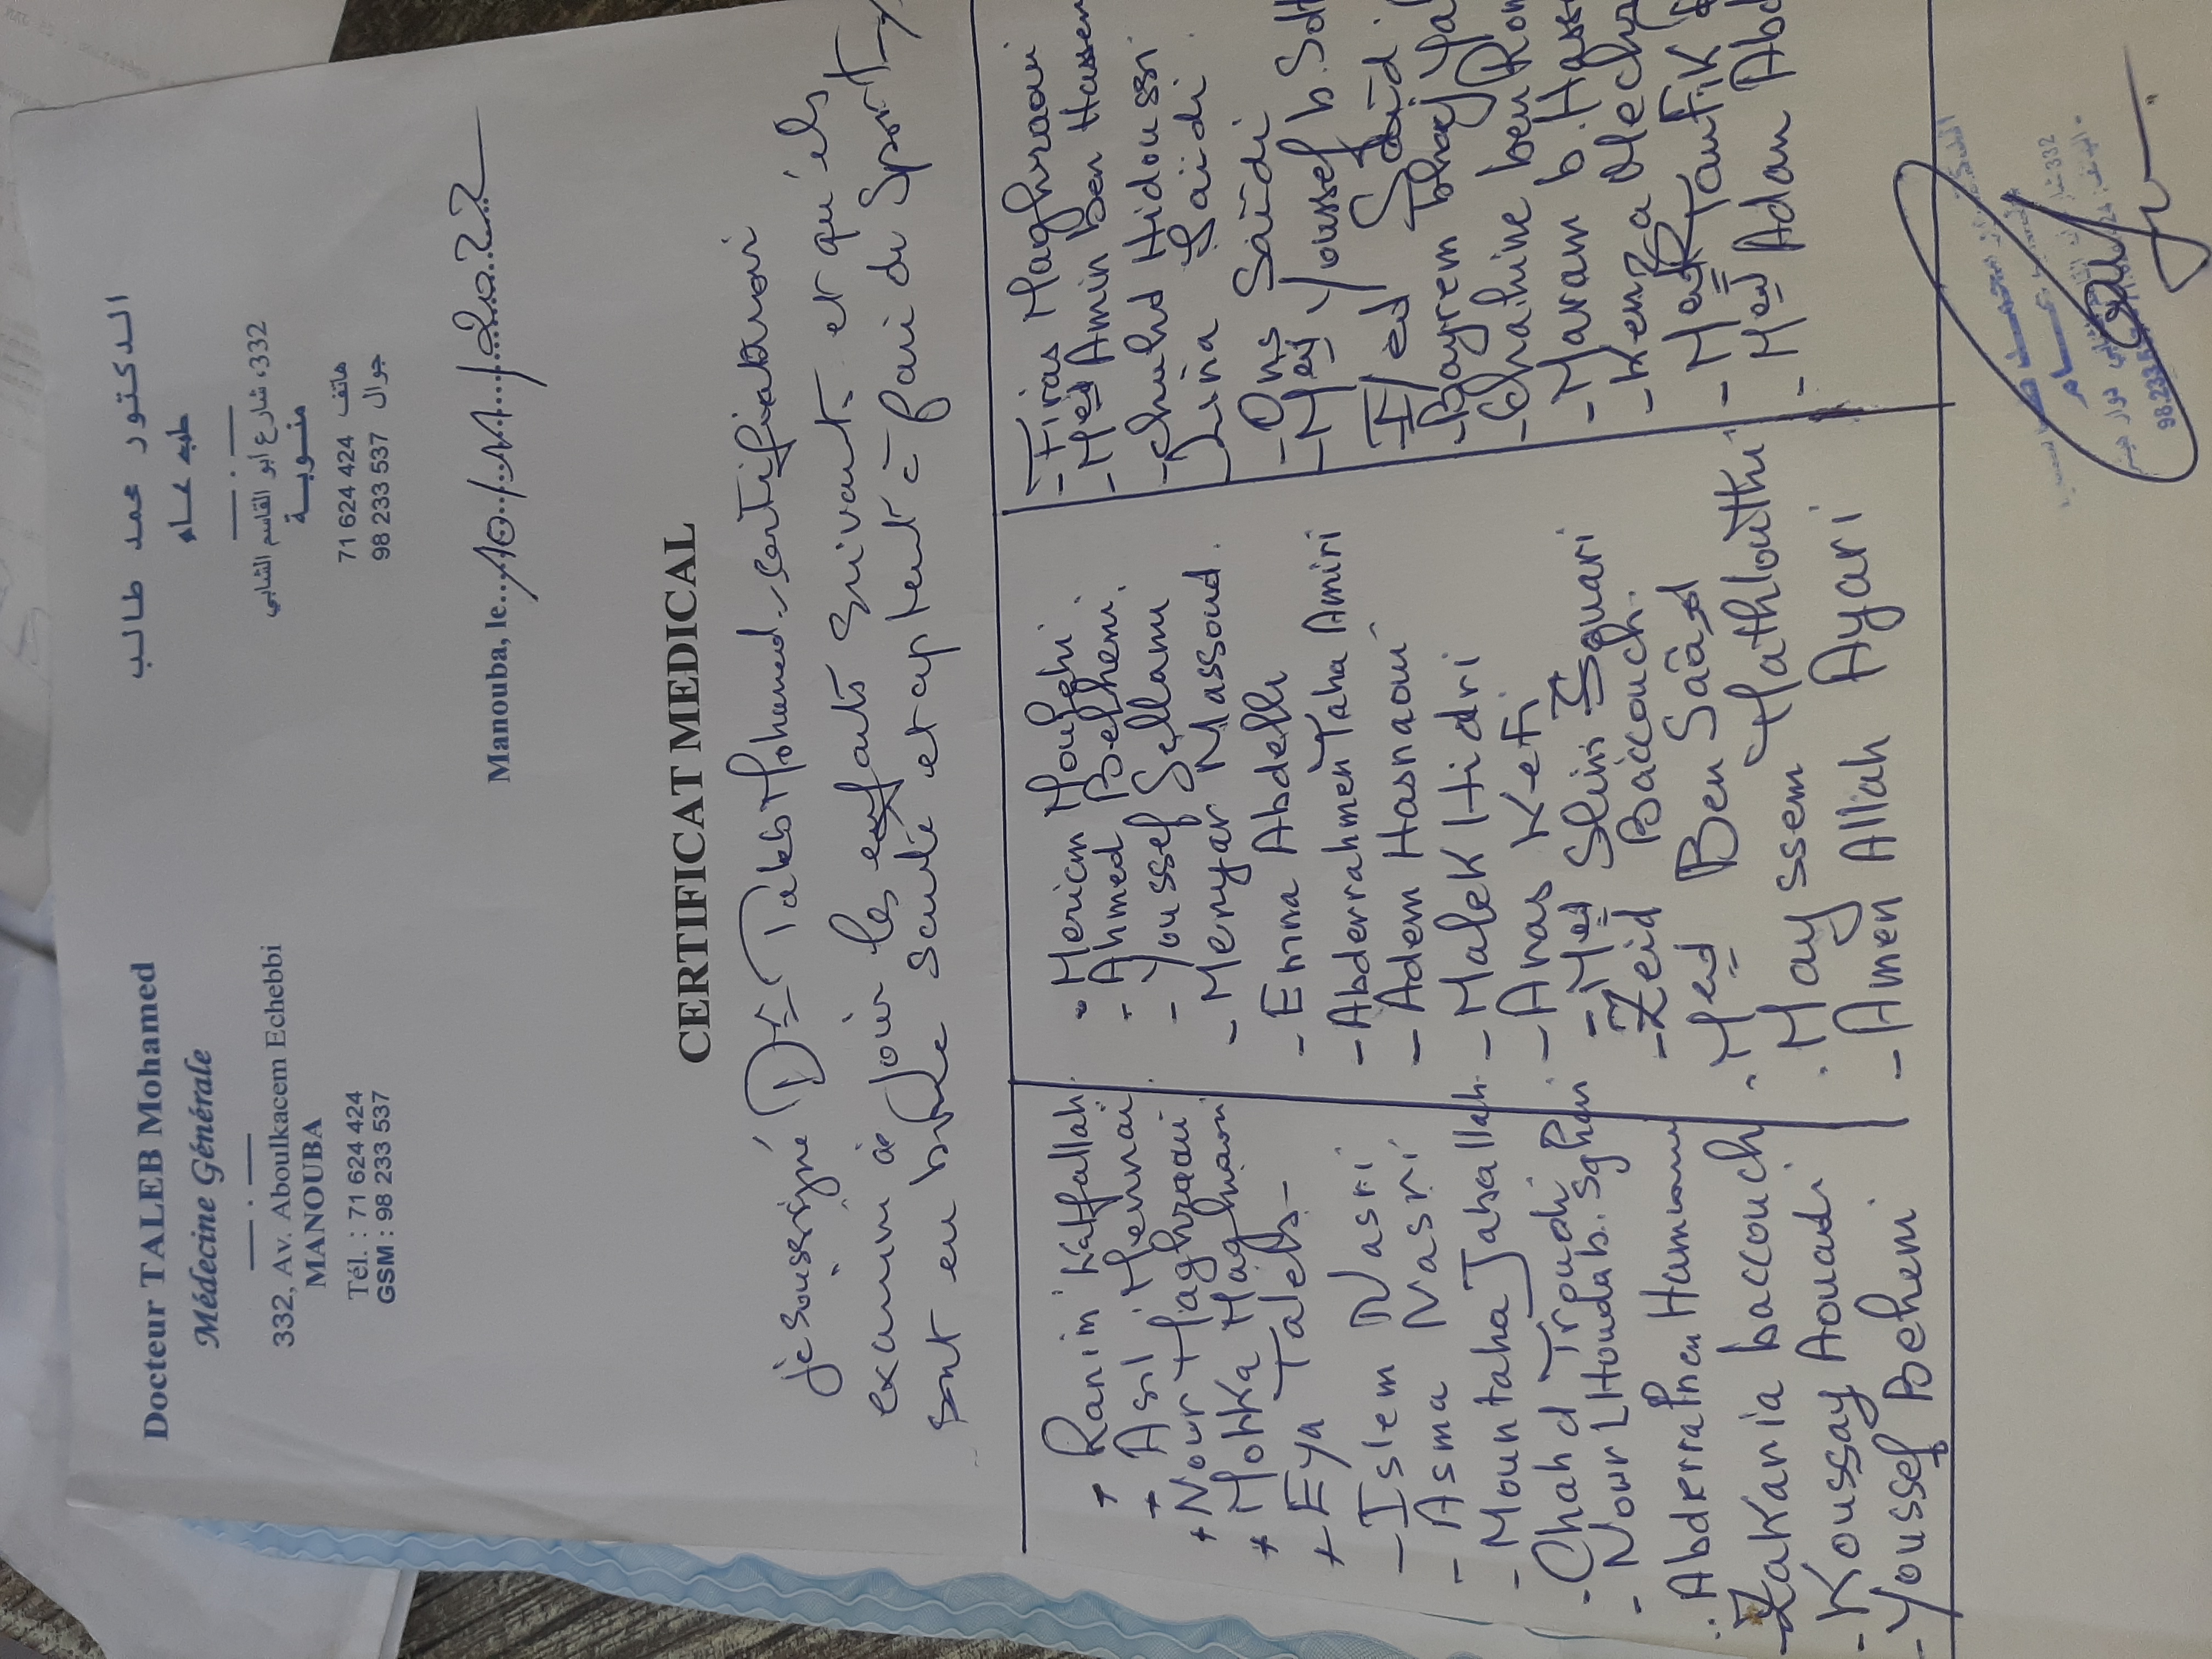 Docteur TALEB Mohamed
Médecine Générale
332, Av. Aboulkacem Echebbi
MANOUBA
Tél. : 71 624 424
GSM : 98 233 537
الدكتور محمد طالب
طب عام
332، شارع أبو القاسم الشابي
منوبة
هاتف 71 624 424
جوال 98 233 537
Manouba, le 10/11/2022
CERTIFICAT MEDICAL
Je soussigné Dr Taleb Mohamed certifie avoir
examiné ce jour les enfants suivants et qu'ils
sont en bonne santé et aptent à faire du sport
+ Ranim Katfallah
+ Asil Mennai
+ Nour Maghraoui
+ Mokka Maghraoui
+ Eya Taleb
- Islem Nasri
- Asma Nasri
- Mountaha Jaballah
- Chahd Troudi
- Nour L Houda b. Sghaier
- Abderrahmen Hammami
- Zakaria baccouch
- Koussay Aouadi
- Youssef Belhemi
- Meriem Moughi
- Ahmed Belhemi
- Youssef Sellami
- Meryar Massoud
- Emna Abdelli
- Abderrahmen Taha Amiri
- Adem Hasnaoui
- Malek Hidri
- Anas Kefi
- Med Slim Souari
- Zeid Baccouch
- Med Ben Saad
- Mayssem Mathlouthi
- Amen Allah Ayari
- Firas Maghraoui
- Med Amin Ben Hassen
- Chahd Hidoussi
- Lina Saidi
- Ons Saidi
- Med Youssef b.
- Iyed Said
- Bayrem
- Chahine ben
- Maram b.
- Kenza
- Med Taufik
- Med Adam